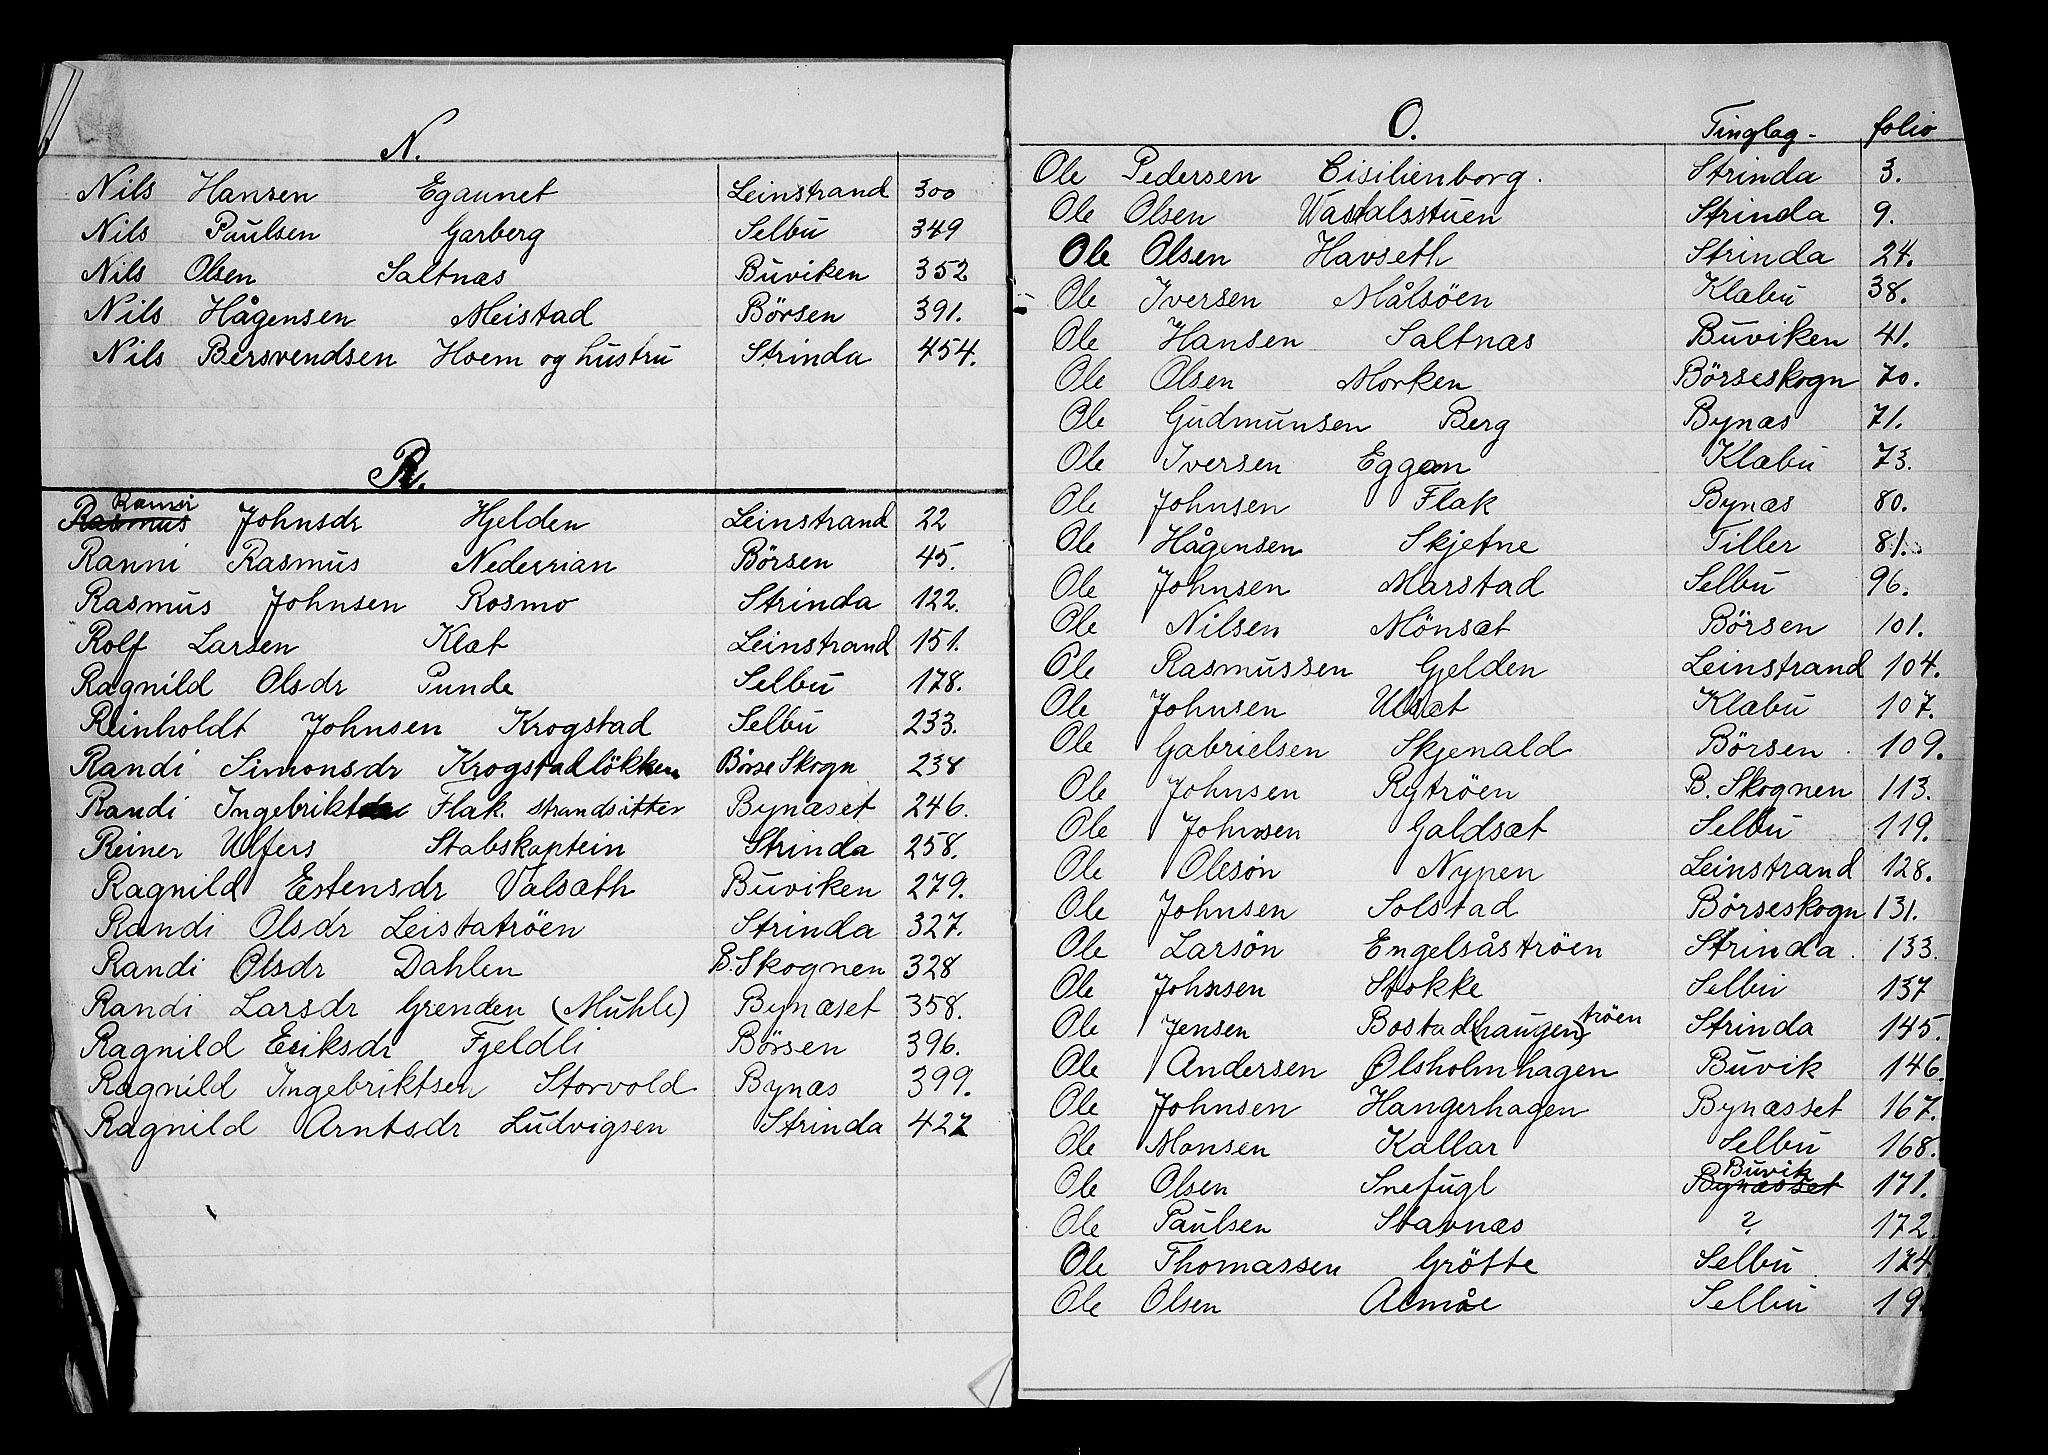 N.
Nils Hansen Egaunet Leinstrand 300
Nils Paulsen Garberg Selbu 349
Nils Olsen Saltnæs Buviken 352
Nils Hågensen Meistad Börsen 391.
Nils Bersvendsen Hoem og hustru Strinda 454.
R.
Ranni
Rasmus Johnsdr Hjelden Leinstrand 22
Ranni Rasmus Nederrian Börsen 45.
Rasmus Johnsen Rosmo Strinda 122.
Rolf Larsen Klæt Leinstrand 151.
Ragnild Olsdr Punde Selbu 178.
Reinholdt Johnsen Krogstad Selbu 233.
Randi Simonsdr Krogstadlökken Börse Skogn 238
Randi Flak. strandsitter Bynæset 246.
Reiner Ulfers Stabskaptein Strinda 258.
Ragnild Estensdr Valsæth Buviken 279.
Randi Olsdr Leistatröen Strinda 327.
Randi Olsdr Dahlen B. Skognen 328
Randi Larsdr Grenden (Muhle) Bynæset 358.
Ragnild Eriksdr Fjeldli Börsen 396.
Ragnild Ingebriktsen Storvold Bynæs 399.
Ragnild Arntsdr Ludvigsen Strinda 422
O. Tinglag - folio
Ole Pedersen Cisilienborg. Strinda 3.
Ole Olsen Wastalsstuen Strinda 9.
Ole Olsen Havseth Strinda 24.
Ole Iversen Målsöen Klæbu 38.
Ole Hansen Saltnæs Buviken 41.
Ole Olsen Morken Börseskogn 70.
Ole Gudmunsen Berg Bynæs 71.
Ole Iversen Eggen Klæbu 73.
Ole Johnsen Flak Bynæs 80.
Ole Hågensen Skjetne Tiller 81.
Ole Johnsen Marstad Selbu 96.
Ole Nilsen Mönsæt Börsen 101.
Ole Rasmussen Gjelden Leinstrand 104.
Ole Johnsen Ulsæt Klæbu 107.
Ole Gabrielsen Skjenald Börsen. 109.
Ole Johnsen Rytröen B. Skognen 113.
Ole Johnsen Galdsæt Selbu 119.
Ole Olesön Nypen Leinstrand 128.
Ole Johnsen Solstad Börseskogn 131.
Ole Larsön Engelsåströen Strinda. 133.
Ole Johnsen Stokke Selbu 137
Ole Jensen Bostad(haugen) tröen Strinda 145.
Ole Andersen Ølsholmhagen Buvik 146.
Ole Johnsen Hangerhagen Bynæsset 167.
Ole Monsen Kallar Selbu 168.
Buvik
Ole Olsen Snefugl Bynæsset 171.
Ole Paulsen Stavnæs ? 172.
Ole Thomassen Grötte Selbu. 174
Ole Olsen Almåe Selbu 19